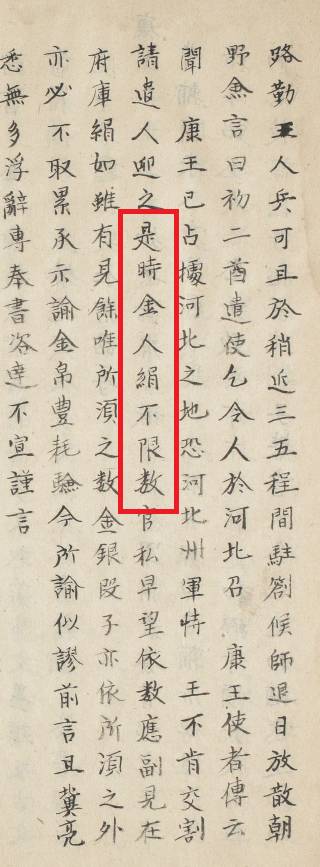 路勤王人兵可且於稍近三五程間駐劄候師退日放散朝
野僉言曰初二酋遣使乞令人於河北召 康王使者傳云
聞 康王已占據河北之地恐河北州軍恃 王不肯交割
請遣人迎之是時金人絹不限數官私早望依數應副見在
府庫絹如雖有見餘唯所須之數金銀段子亦依所須之外
亦必不取累承示諭金帛豊耗驗今所諭似謬前言且冀亮
悉無多浮辭專奉書咨達不宣謹言